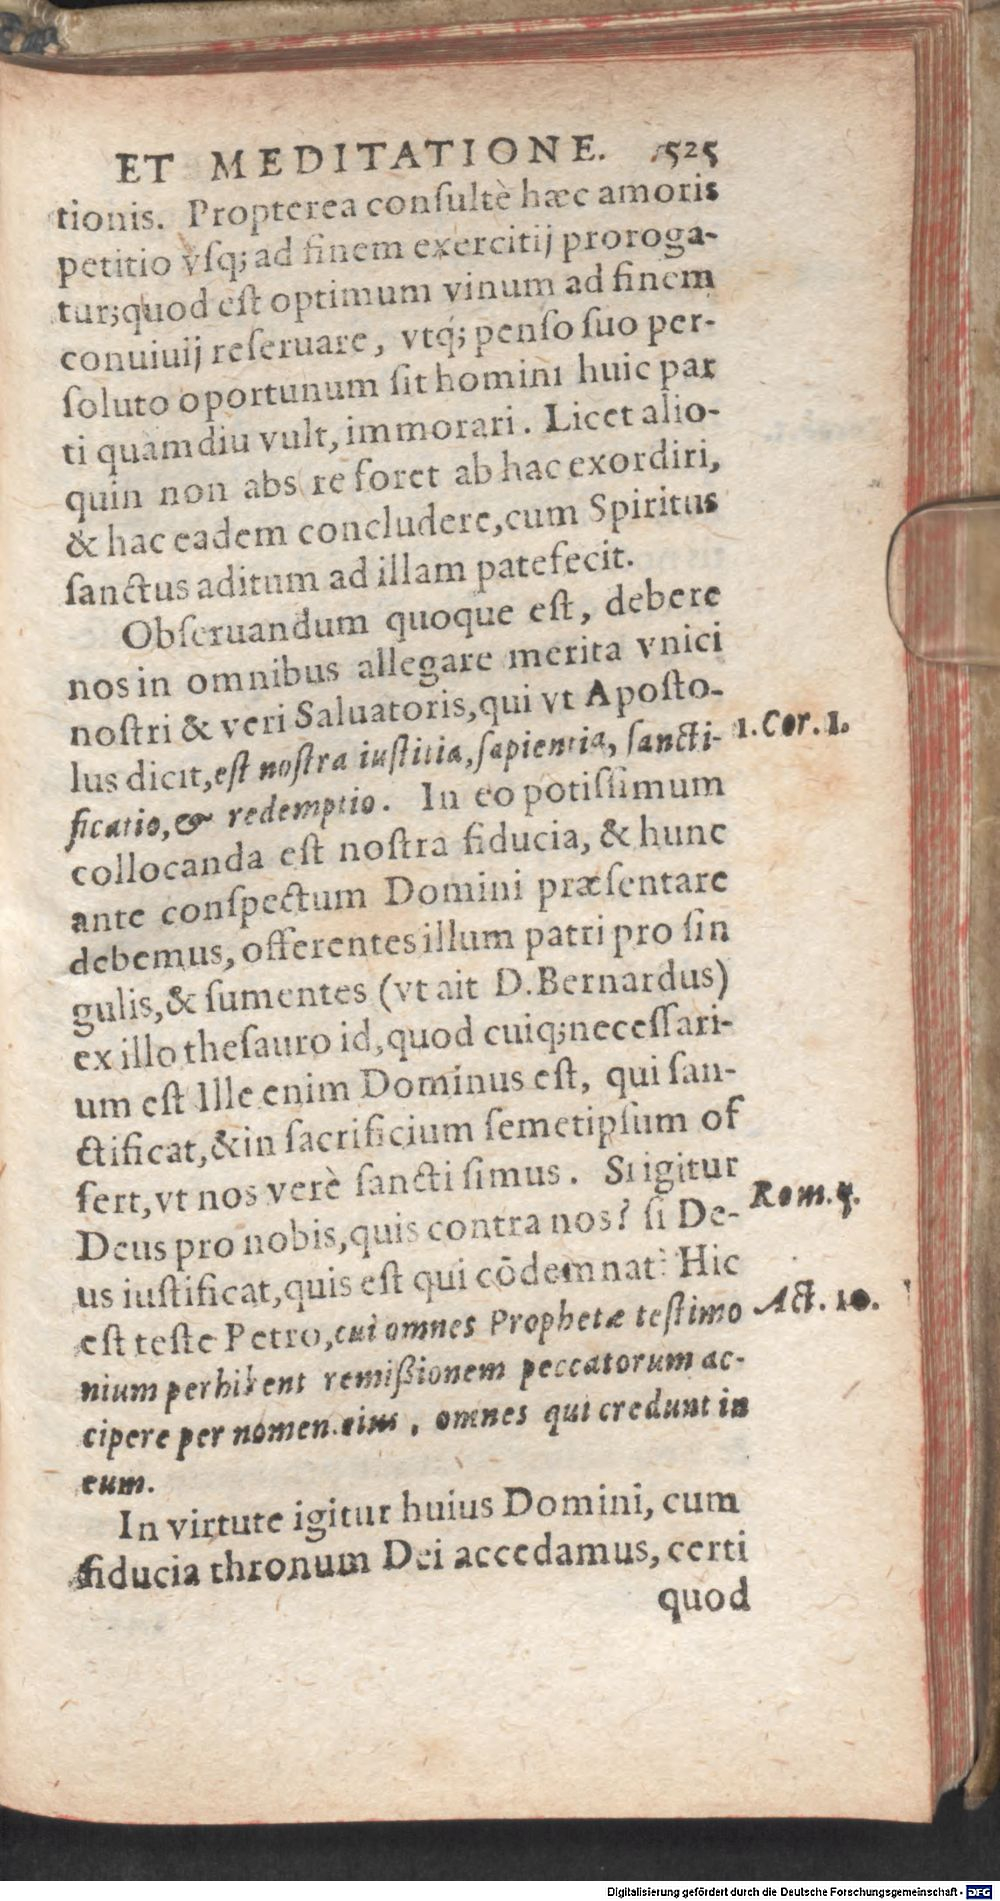 ET MEDITATIONE. 525
tionis. Propterea conſultè hæc amoris
petitio vſq; ad finem exercitij proroga-
tur; quod eſt optimum vinum ad finem
conuiuij reſeruare, vtq́; penſo ſuo per-
ſoluto oportunum ſit homini huic par
ti quàmdiu vult, immorari. Licet alio-
quin non abs re foret ab hac exordiri,
& hac eadem concludere, cum Spiritus
ſanctus aditum ad illam patefecit.
Obſeruandum quoque eſt, debere
nos in omnibus allegare merita vnici
noſtri & veri Saluatoris, qui vt Apoſto-
lus dicit, eſt noſtra iuſtitia, ſapientia, ſancti-
1. Cor. 1.
ficatio, & redemptio. In eo potiſſimum
collocanda eſt noſtra fiducia, & hunc
ante conſpectum Domini præſentare
debemus, offerentes illum patri pro ſin
gulis, & ſumentes (vt ait D. Bernardus)
ex illo theſauro id, quod cuiq; neceſſari-
um eſt Ille enim Dominus eſt, qui ſan-
ctificat, & in ſacrificium ſemetipſum of
fert, vt nos verè ſancti ſimus. Si igitur
Rom. 5.
Deus pro nobis, quis contra nos? ſi De-
us iuſtificat, quis eſt qui cōdemnat? Hic
eſt teſte Petro, cui omnes Prophetæ teſtimo
Act. 10.
nium perhibent remißionem peccatorum ac-
cipere per nomen eius, omnes qui credunt in
eum.
In virtute igitur huius Domini, cum
fiducia thronum Dei accedamus, certi
quod
Digitalisierung gefördert durch die Deutsche Forschungsgemeinschaft - DFG